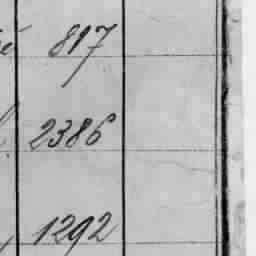 817
2386
1292